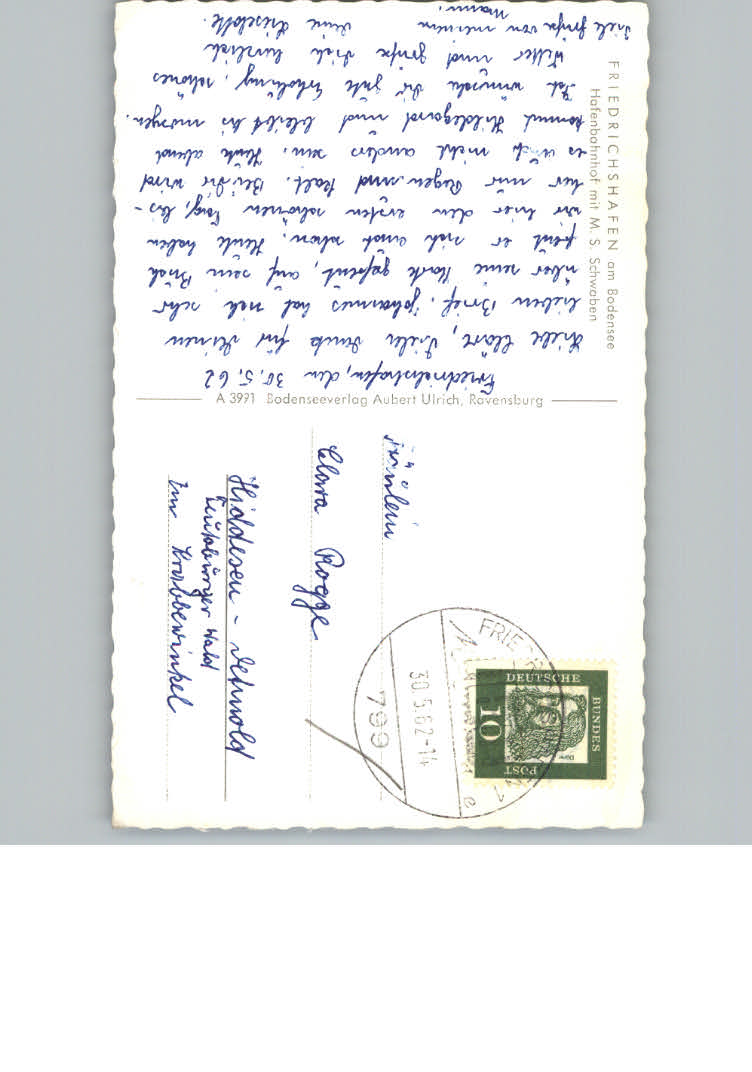 FRIEDRICHSHAFEN am Bodensee
Hafenbahnhof mit M. S. Schwaben
Friedrichshafen, den 30.5.62
Liebe Clärl, Vielen Dank für Deinen
lieben Brief. Johannes hat sich sehr
über seine Karte gefreut, auf sein Buch
freut er sich auch schon. Heute haben
wir hier den ersten schönen Tag, bis-
her nur Regen und kalt. Bei Dir wird
es auch nicht anders sein. Heute abend
kommt Hildegard und bleibt bis morgen.
Ich wünsche Dir gute Erholung, schönes
Wetter und grüße Dich herzlich
Deine Lieselotte.
Viele Grüße von meinem
Mann.
A 3991 Bodenseeverlag Aubert Ulrich, Ravensburg
Fräulein
Clara Rogge
Hiddesen - Detmold
Teutoburger Wald
Im Krabbewinkel
FRIEDR
799
30.5.62-14
1
e
DEUTSCHE
BUNDES
POST
10
Dürer